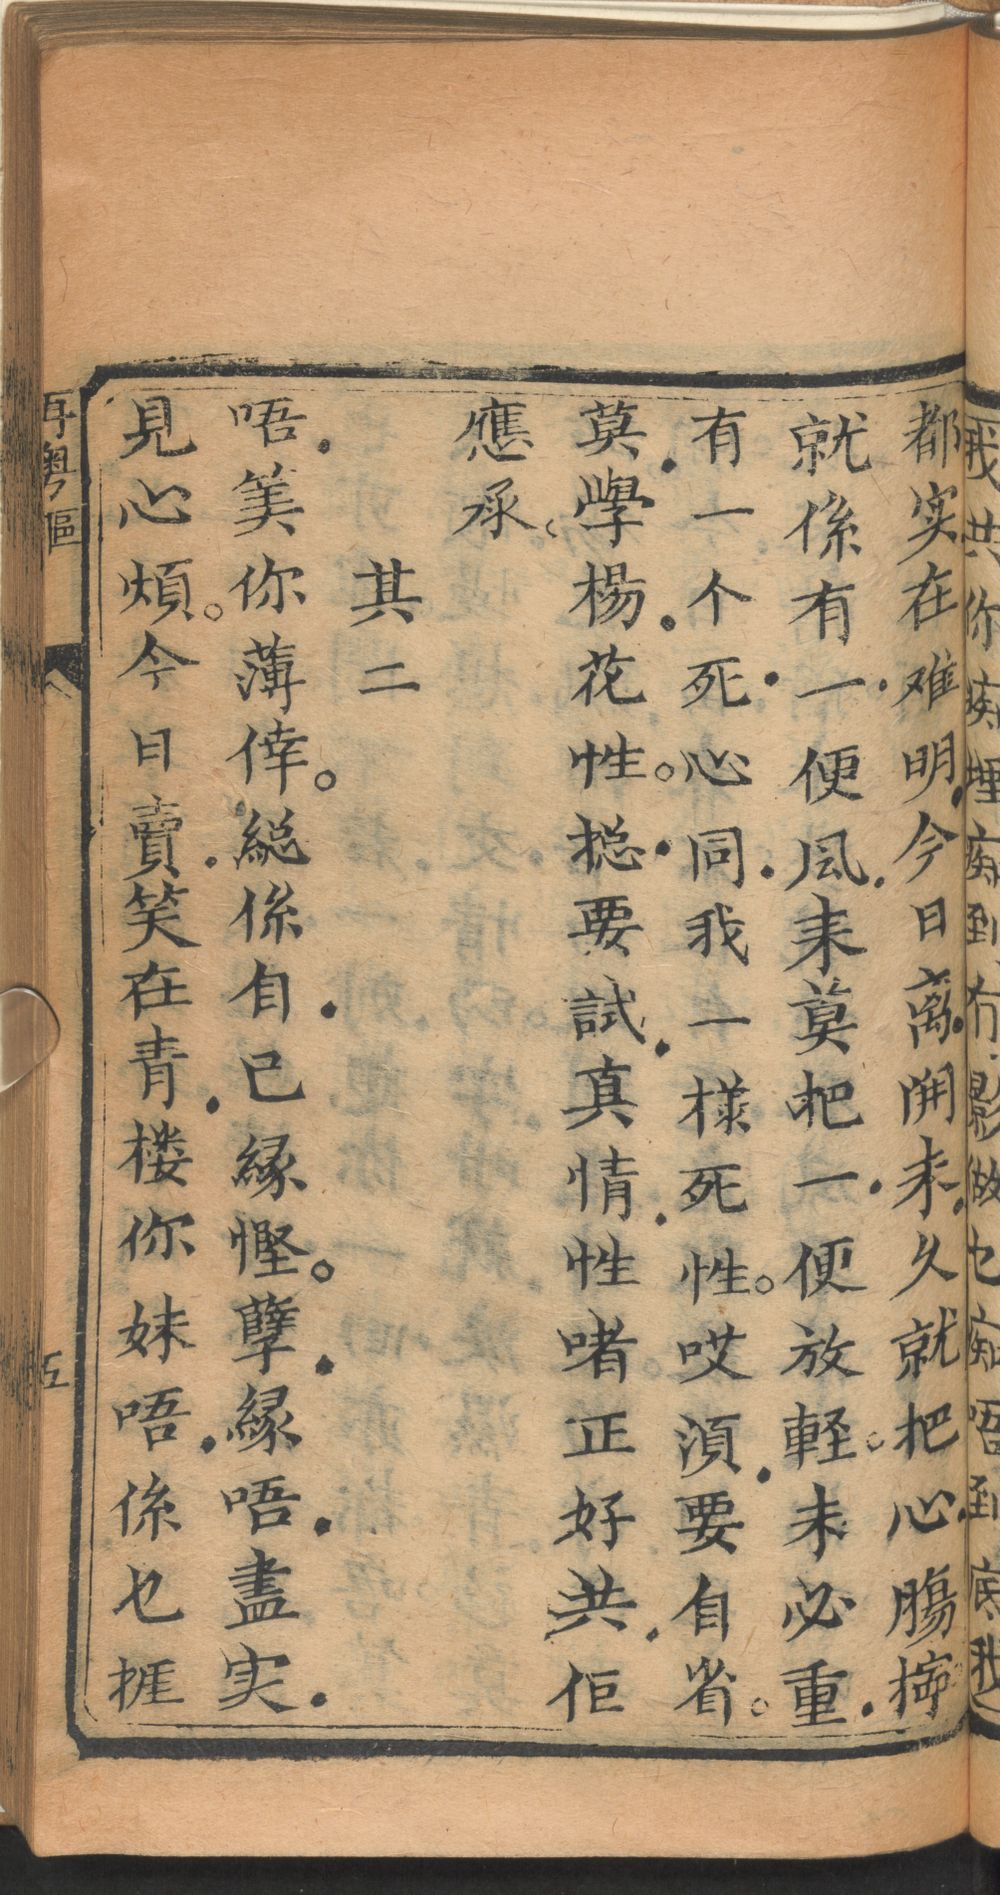 我共你痴埋痴到冇影做乜痴唔到底我
都实在难明今日离開未久就把心腸擰
就係有一便風来莫把一便放軽未必重
有一个死心同我一樣死性哎湏要自省
莫學楊花性搃要試真情性啫正好共佢
應承
其二
唔美你薄倖総係自已縁慳孽縁唔盡実
見心煩今日賣笑在青楼你妹唔係乜捱
再粤謳
五